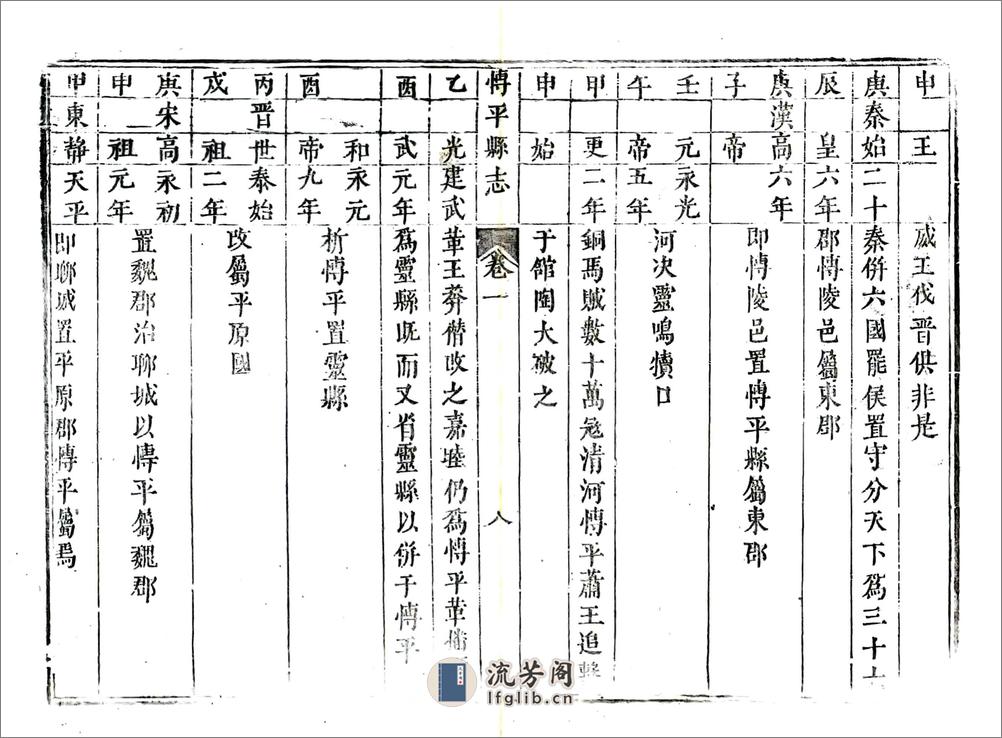 申王威王伐晋供非是
庚秦始二十秦併六國罷侯置守分天下爲三十六
辰皇六年郡愽陵邑屬東郡
庚漢高六年
即愽陵邑置愽平縣屬東郡
子帝
壬元永光
河決靈鳴犢口
午帝五年
甲更二年銅馬賊數十萬冦清河愽平蕭王追擊
申始于館陶大破之
愽平縣志 卷一 八
乙光建武革王莽僭改之嘉睦仍爲愽平革
酉武元年爲靈縣既而又省靈縣以併于愽平
和永元
析愽平置靈縣
酉帝九年
丙晋世泰始
改屬平原國
戍祖二年
庚宋高永初
置魏郡治聊城以愽平屬魏郡
申祖元年
甲東靜天平即聊城置平原郡愽平屬焉
流芳阁
lfglib.cn